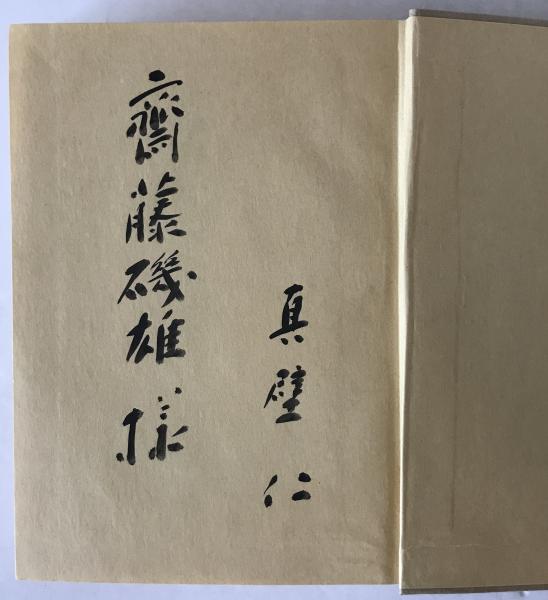 真壁仁
齋藤磯雄様